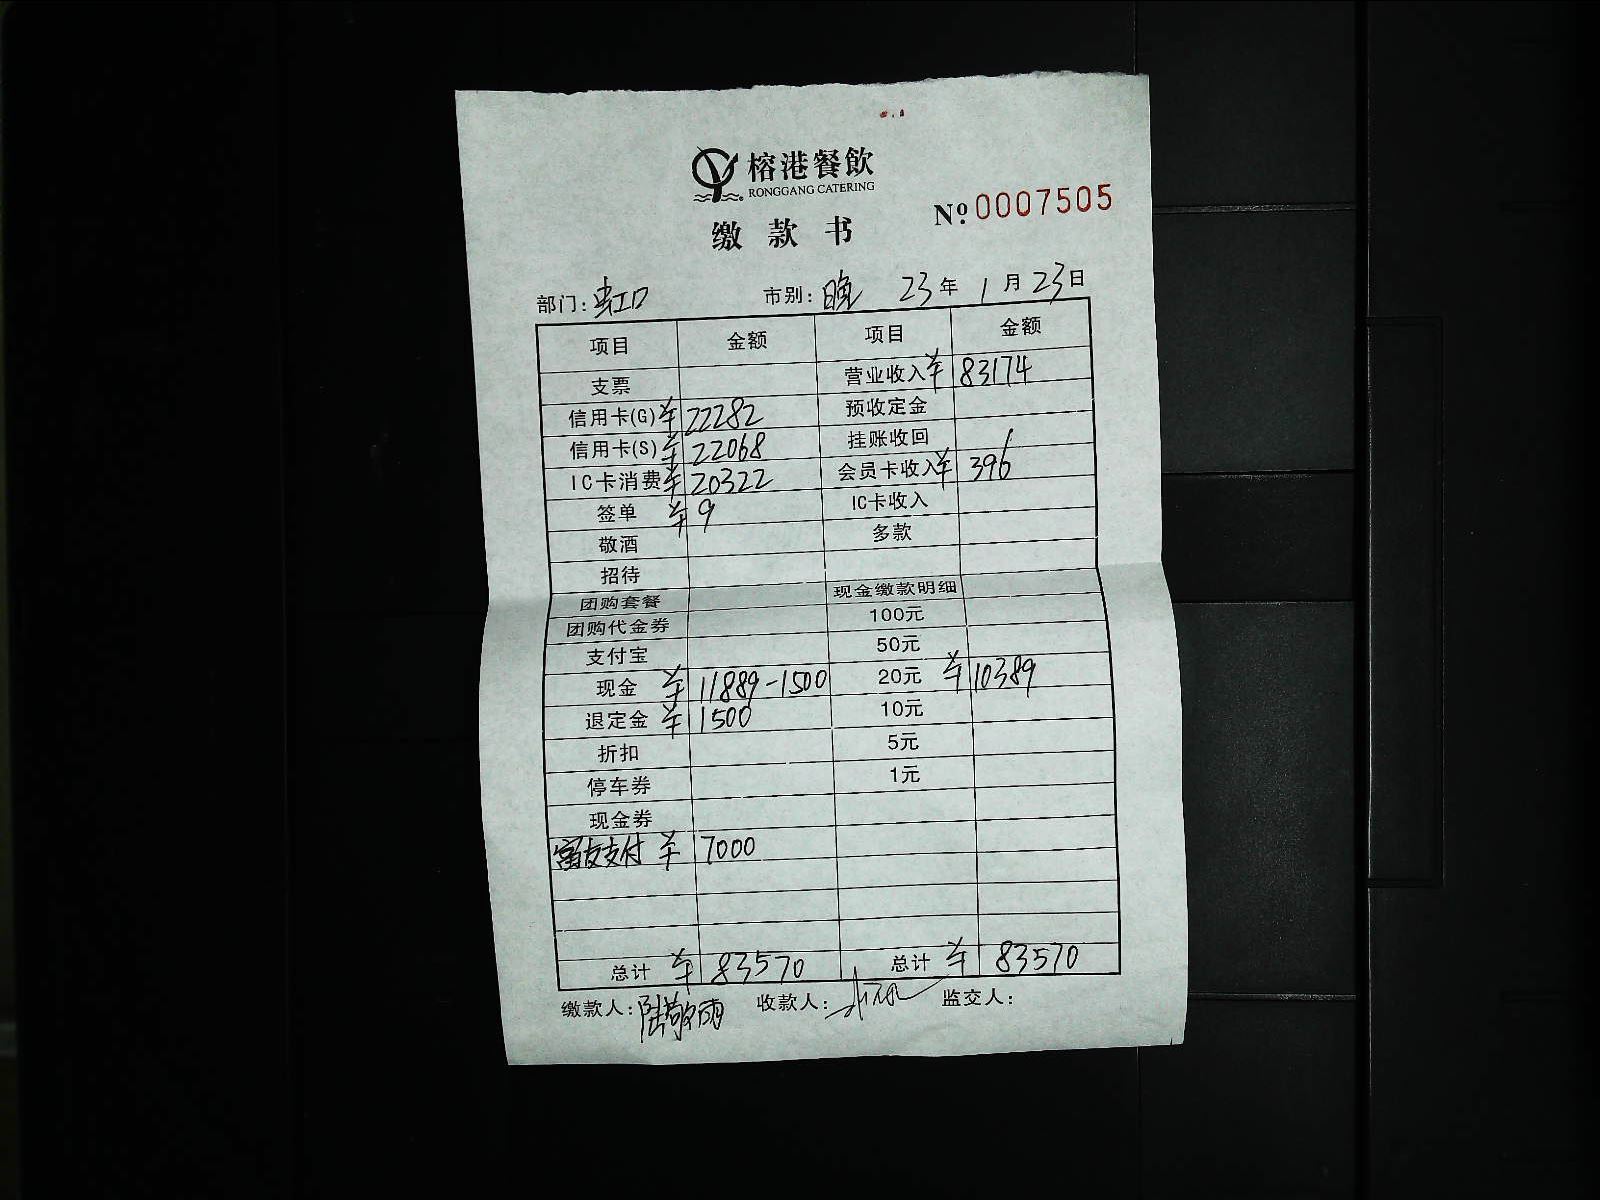 榕港餐飲
RONGGANG CATERING
缴款书
№ 0007505
部门：虹口 市别：晚 23年1月23日
项目 金额 项目 金额
支票 营业收入 ¥83174
信用卡(G) ¥22282 预收定金
信用卡(S) ¥22068 挂账收回
IC卡消费 ¥20322 会员卡收入 ¥396
签单 ¥9 IC卡收入
敬酒 多款
招待
团购套餐 现金缴款明细
团购代金券 100元
支付宝 50元
现金 ¥11889-1500 20元 ¥10389
退定金 ¥1500 10元
折扣 5元
停车券 1元
现金券
富友支付 ¥7000
总计 ¥83570 总计 ¥83570
缴款人：陆敬雨 收款人： 监交人：